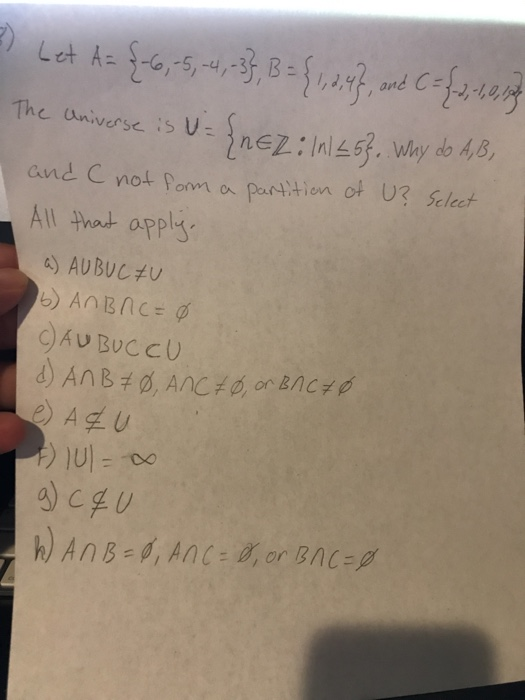 Let A= {-6,-5,-4,-3}, B = {1,2,4}, and C={-2,-1,0,1,2}
The universe is U = {n∈Z : |n|≤5}. Why do A,B,
and C not form a partition of U? Select
All that apply.
a) A∪B∪C≠U
b) A∩B∩C= ∅
c) A∪B∪C⊂U
d) A∩B≠∅, A∩C≠∅, or B∩C≠∅
e) A⊈U
F) |U| = ∞
g) C⊈U
h) A∩B=∅, A∩C=∅, or B∩C=∅